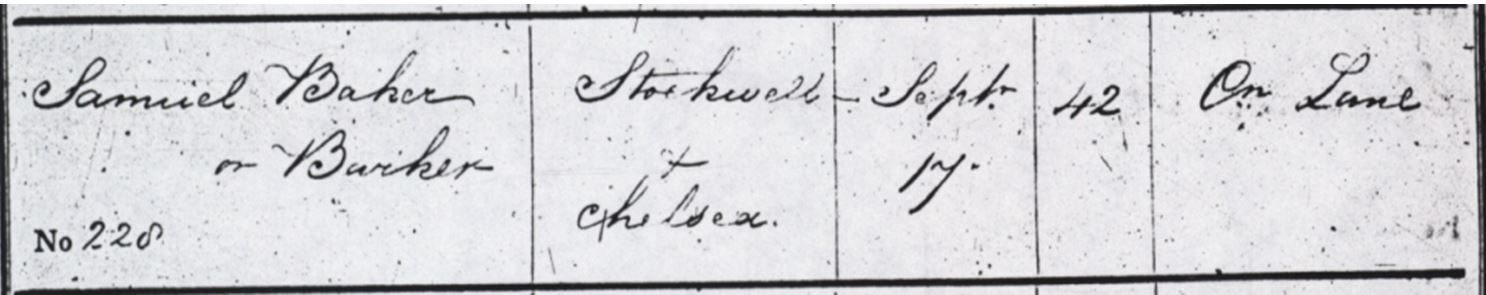 Samuel Baker
or Barker
No 228
Stockwell
+
Chelsea.
Septr
17.
42
On Lane